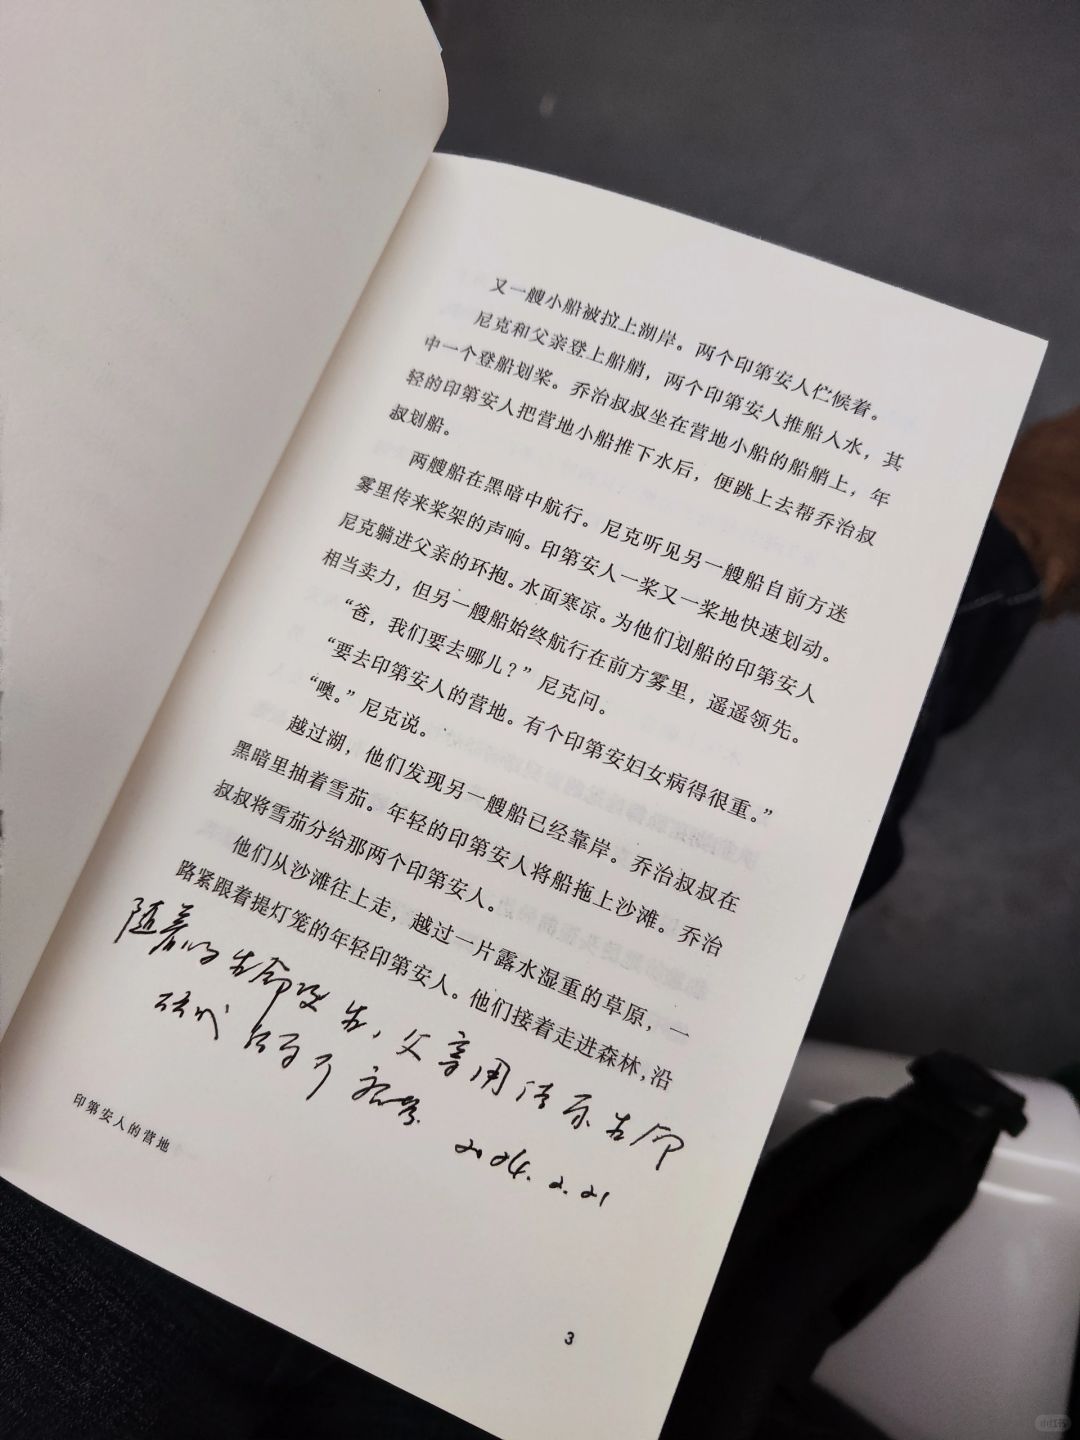 又一艘小船被拉上湖岸。两个印第安人伫候着。
尼克和父亲登上船艄，两个印第安人推船入水，其
中一个登船划桨。乔治叔叔坐在营地小船的船艄上，年
轻的印第安人把营地小船推下水后，便跳上去帮乔治叔
叔划船。
两艘船在黑暗中航行。尼克听见另一艘船自前方迷
雾里传来桨架的声响。印第安人一桨又一桨地快速划动。
尼克躺进父亲的环抱。水面寒凉。为他们划船的印第安人
相当卖力，但另一艘船始终航行在前方雾里，遥遥领先。
“爸，我们要去哪儿？”尼克问。
“要去印第安人的营地。有个印第安妇女病得很重。”
“噢。”尼克说。
越过湖，他们发现另一艘船已经靠岸。乔治叔叔在
黑暗里抽着雪茄。年轻的印第安人将船拖上沙滩。乔治
叔叔将雪茄分给那两个印第安人。
他们从沙滩往上走，越过一片露水湿重的草原，一
路紧跟着提灯笼的年轻印第安人。他们接着走进森林，沿
随着 生命 父亲用
2024.2.21
印第安人的营地
3
小红书